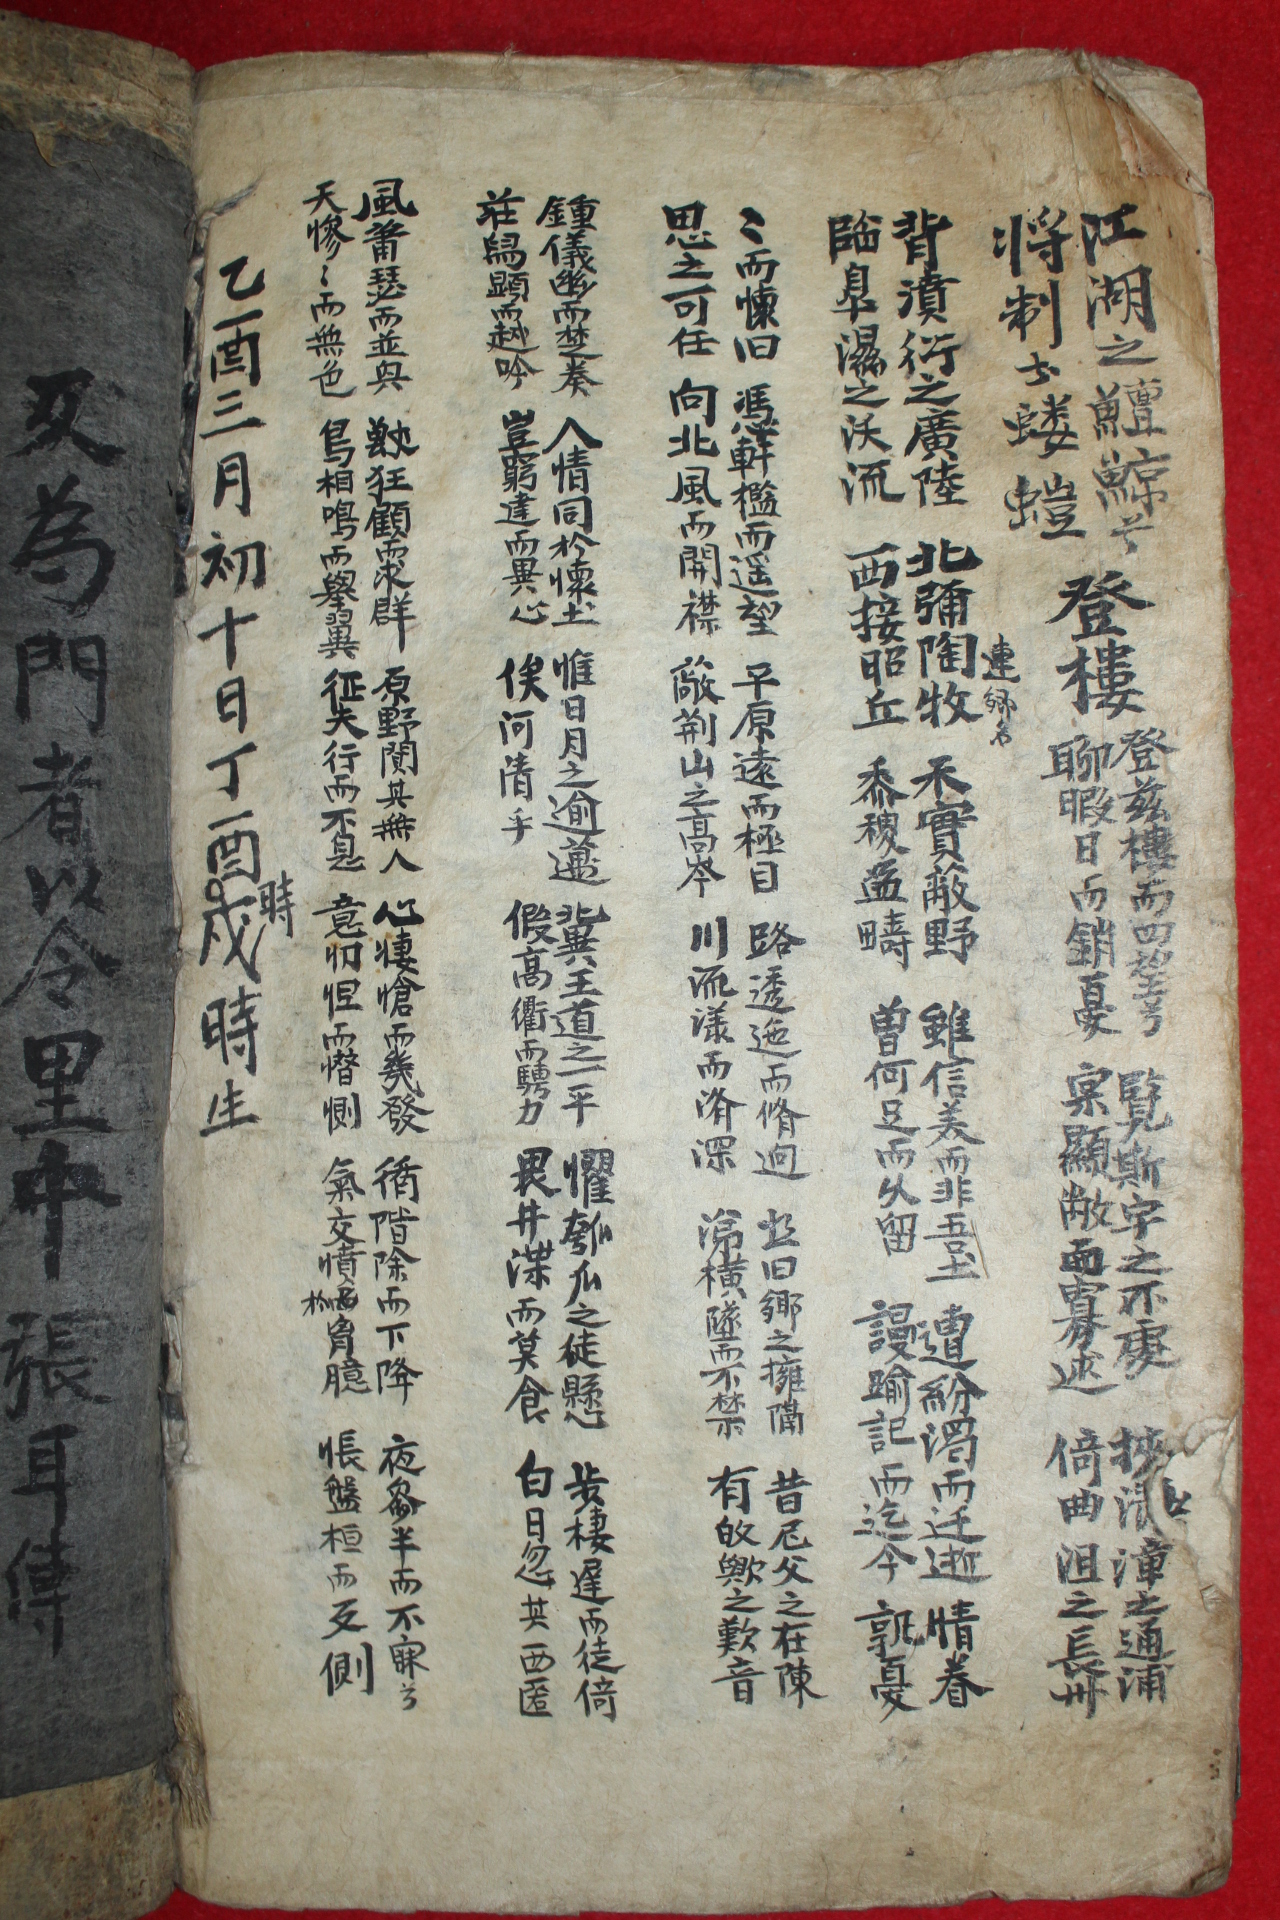 江湖之鱣鯨兮
将制於螻螘
登樓
登茲樓而四望兮
聊暇日而銷憂
覽斯宇之所處
寔顯敞而寡逑
挾清漳之通浦
倚曲沮之長州
背濆衍之廣陸
臨皐濕之沃流
北彌陶牧
連郷名
西接昭丘
禾實蔽野
黍稷盈疇
雖信美而非吾土
曽何足而久留
遭紛濁而迁逝
謾踰記而迄今
情眷
孰憂
〻而懷旧
思之可任
憑軒檻而遥望
向北風而開襟
平原遠而極目
蔽荆山之高岑
路逶迤而脩迥
川流漾而濟深
悲旧郷之擁隔
涕橫墜而不禁
昔尼父之在陳
有故歟之歎音
鍾儀幽而楚奏
莊舄顕而越吟
人情同於懷土
豈窮達而異心
惟日月之逾邁
俟河清乎
冀王道之一平
假高衢而騁力
懼瓠瓜之徒懸
畏井渫而莫食
步棲遲而徒倚
白日忽其西匿
風蕭瑟而並興
天慘〻而無色
獸狂顧而求群
鳥相鳴而擧翼
原野闃其無人
征夫行而不息
心悽愴而幾發
意忉怛而憯惻
循階除而下降
氣交憤於胷臆
夜叅半而不寐兮
悵盤桓而反側
乙酉三月初十日丁酉戌時生
時
及為門者以令里中張耳傳